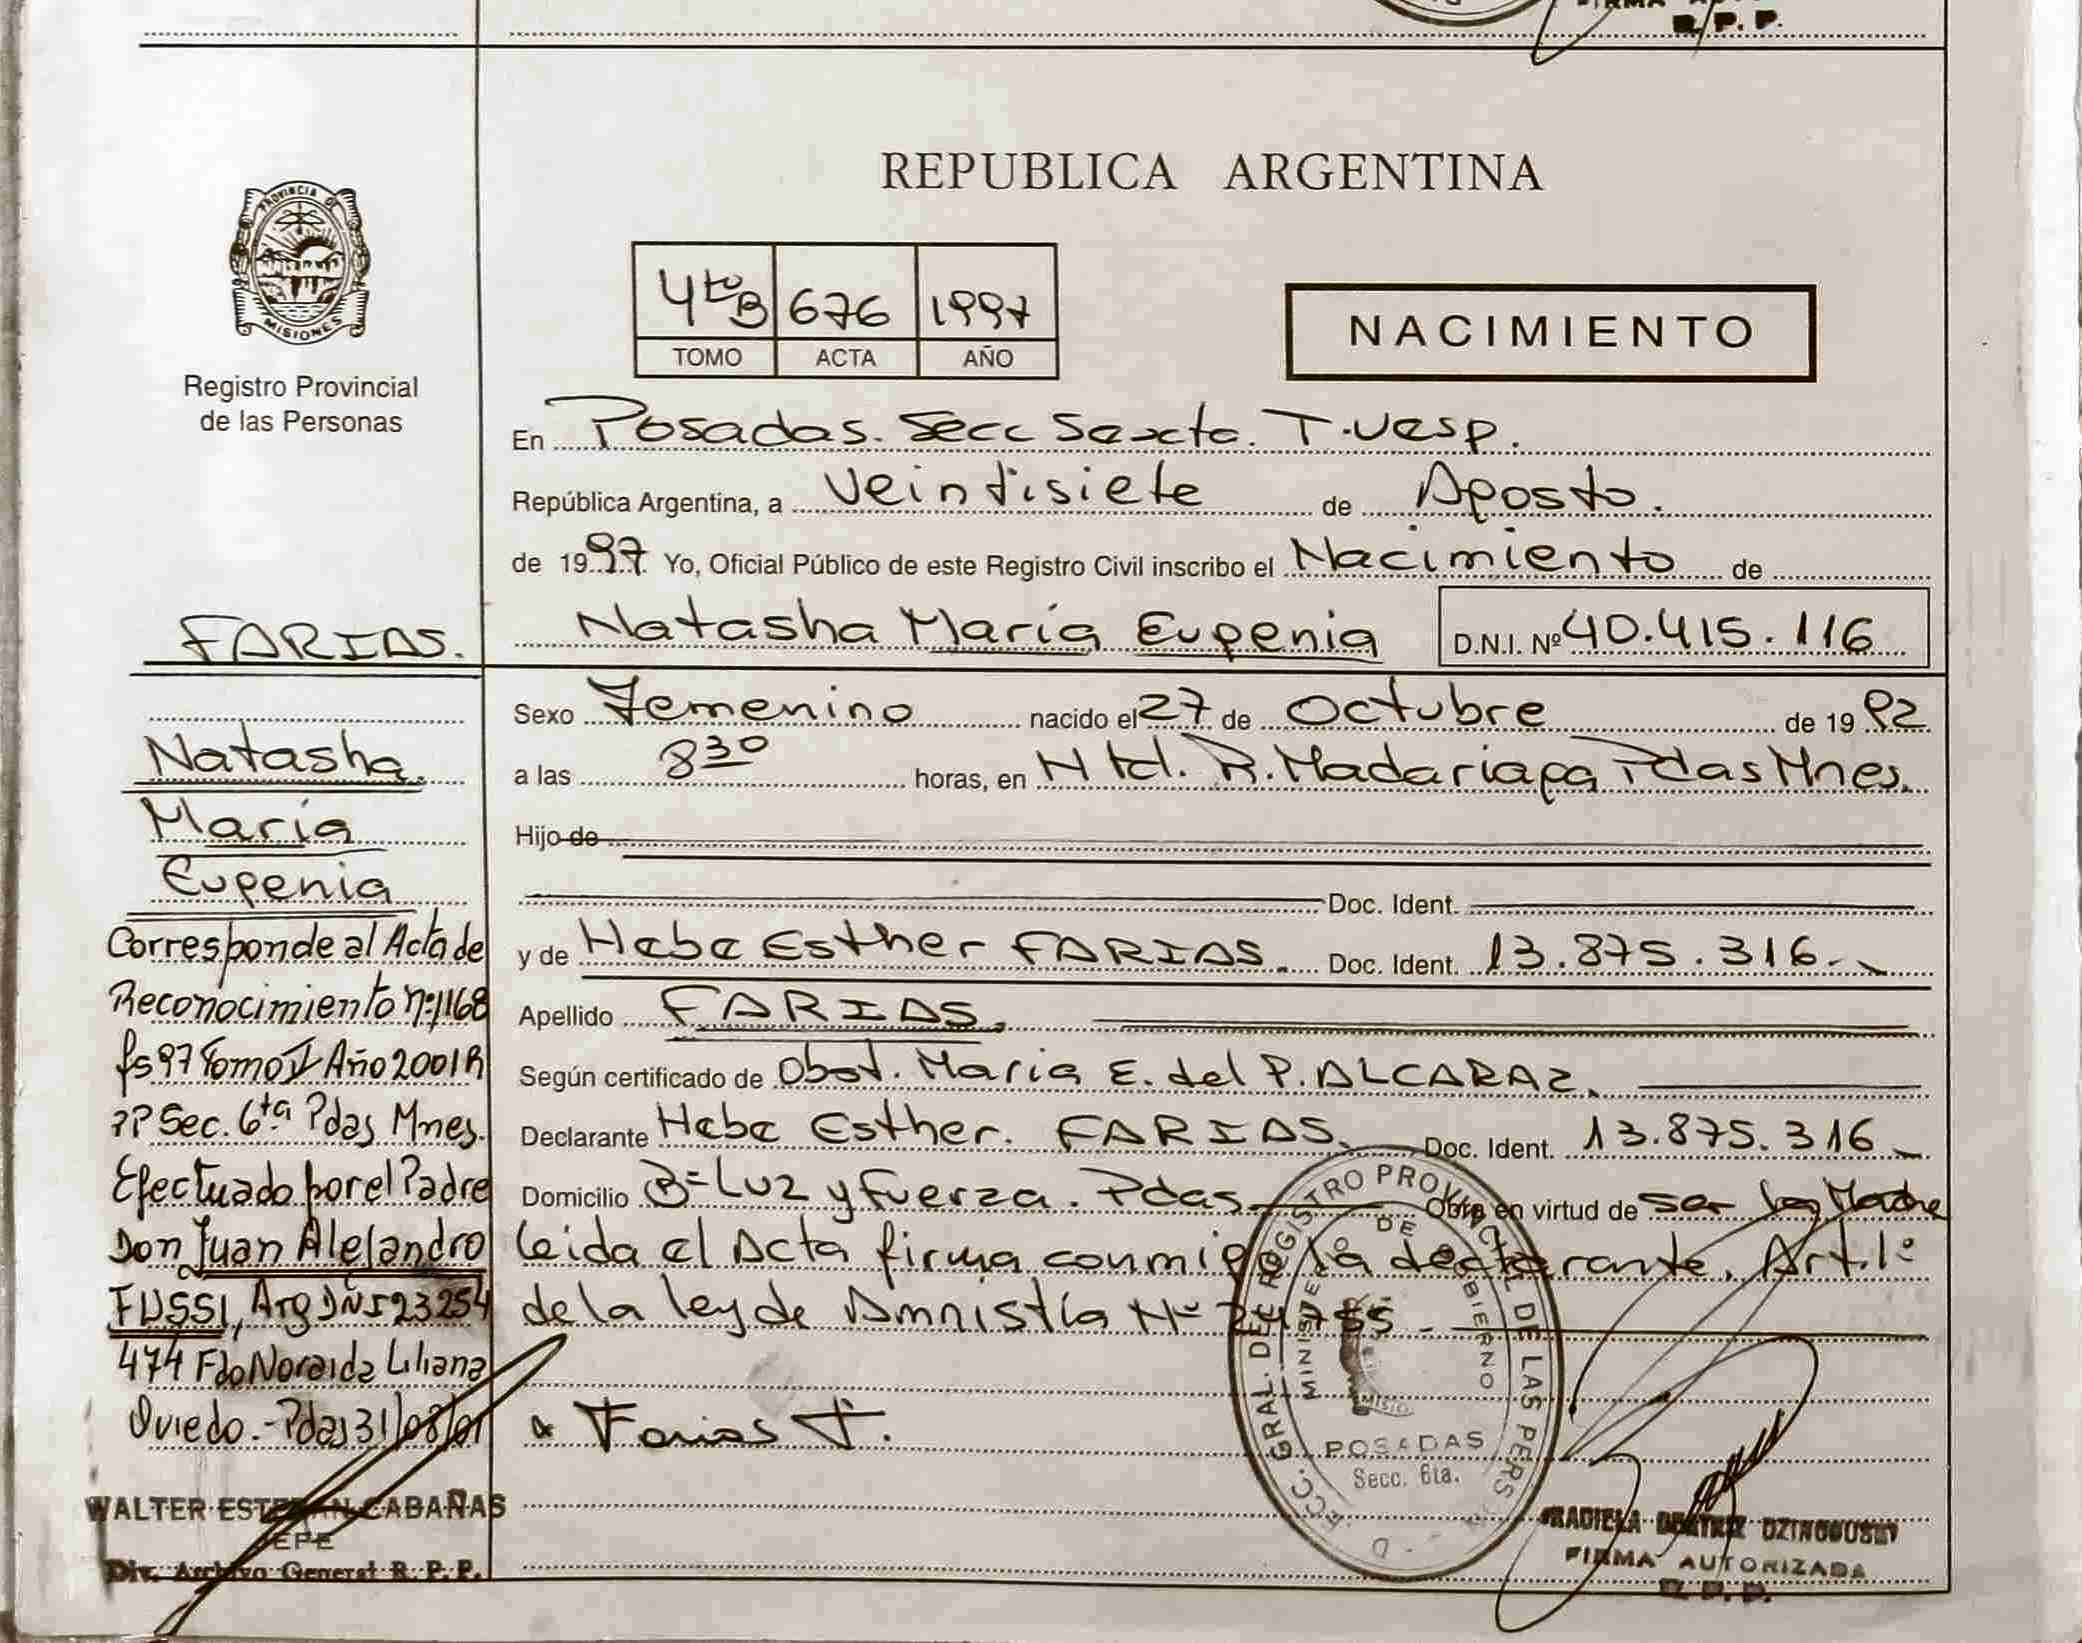 R. P. P.
REPUBLICA ARGENTINA
PROVINCIA DE
MISIONES
Registro Provincial
de las Personas
4to B 676 1997
TOMO ACTA AÑO
NACIMIENTO
En Posadas. Secc Sexta. T. Vesp.
República Argentina, a veintisiete de Agosto.
de 1997 Yo, Oficial Público de este Registro Civil inscribo el Nacimiento de
Natasha María Eugenia D.N.I. Nº 40.415.116
Sexo Femenino nacido el 27 de Octubre de 1992
a las 8 30 horas, en Htal. R. Madariaga Pdas Mnes.
Hijo de
Doc. Ident.
y de Hebe Esther FARIAS. Doc. Ident. 13.875.316.
Apellido FARIAS.
Según certificado de Obst. Maria E. del P. ALCARAZ.
Declarante Hebe Esther. FARIAS. Doc. Ident. 13.875.316
Domicilio Bº Luz y Fuerza. Pdas Obra en virtud de ser la Madre
leida el Acta firma conmigo la declarante. Art. 1º
de la ley de Amnistía Nº 24.755
Farias
FARIAS.
Natasha
María
Eugenia
Corresponde al Acta de
Reconocimiento nº 1168
fs 97 Tomo II Año 2001 R
PP Sec. 6ta Pdas Mnes.
Efectuado por el Padre
Don Juan Alejandro
FUSSI, Arg DNI 23254
474 Fdo Noraida Liliana
Oviedo.- Pdas 31/08/01
WALTER ESTEBAN CABAÑAS
JEFE
Div. Archivo General R. P. P.
DIRECC. GRAL. DE REGISTRO PROVINCIAL DE LAS PERSONAS
MINISTERIO DE GOBIERNO
POSADAS
Secc. 6ta.
FIRMA AUTORIZADA
R. P. P.